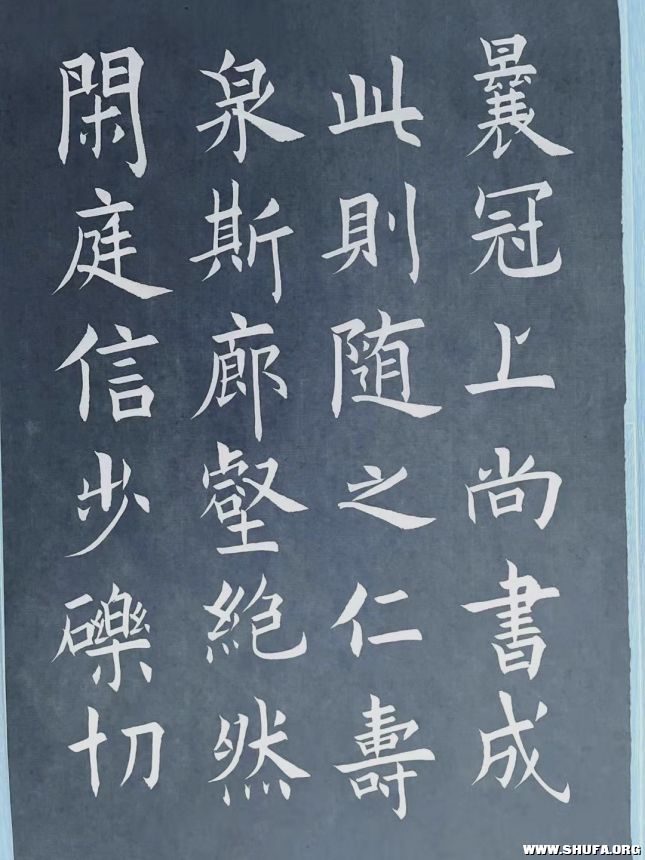 曩冠上尚書成
此則随之仁壽
泉斯廊壑絶然
閑庭信步礫切
WWW.SHUFA.ORG